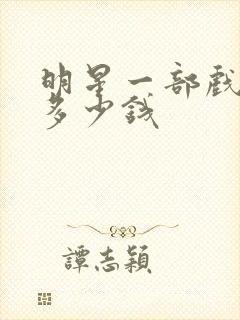 明星一部戲
多少錢
譚志穎